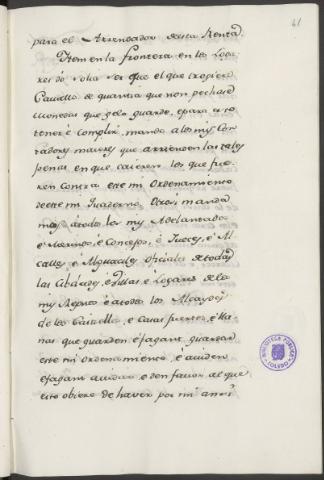 41
para el Arrendador desta Renta.
Item en la frontera en los Loga-
res dó solia ser que el que troxiere
Cauallo de quantia que non pechase
monedas que gelo guarde, e para esto
tener é complir, mando a los mis Con-
tadores maiores que arrienden las tales
penas en que caieren los que fue-
ren contra este mi Ordenamiento
deste mi Quaderno. Otrosi, mando
mas á todos los mis Adelantados
é Merinos, é Concejos, é Jueces, é Al-
calles é Alguaciles, Oficiales de todas
las Cibdades, é Villas e Logares de los
mis Regnos é a todos los Alcaydes
de los Castillos, e Casas fuertes, é lla-
nas que guarden, é fagan guardar
este mi ordenamiento, é aiuden
é fagan aiudar, e den fauor al que
esto obiere de haver por mi arren-
BIBLIOTECA PUBLICA
TOLEDO